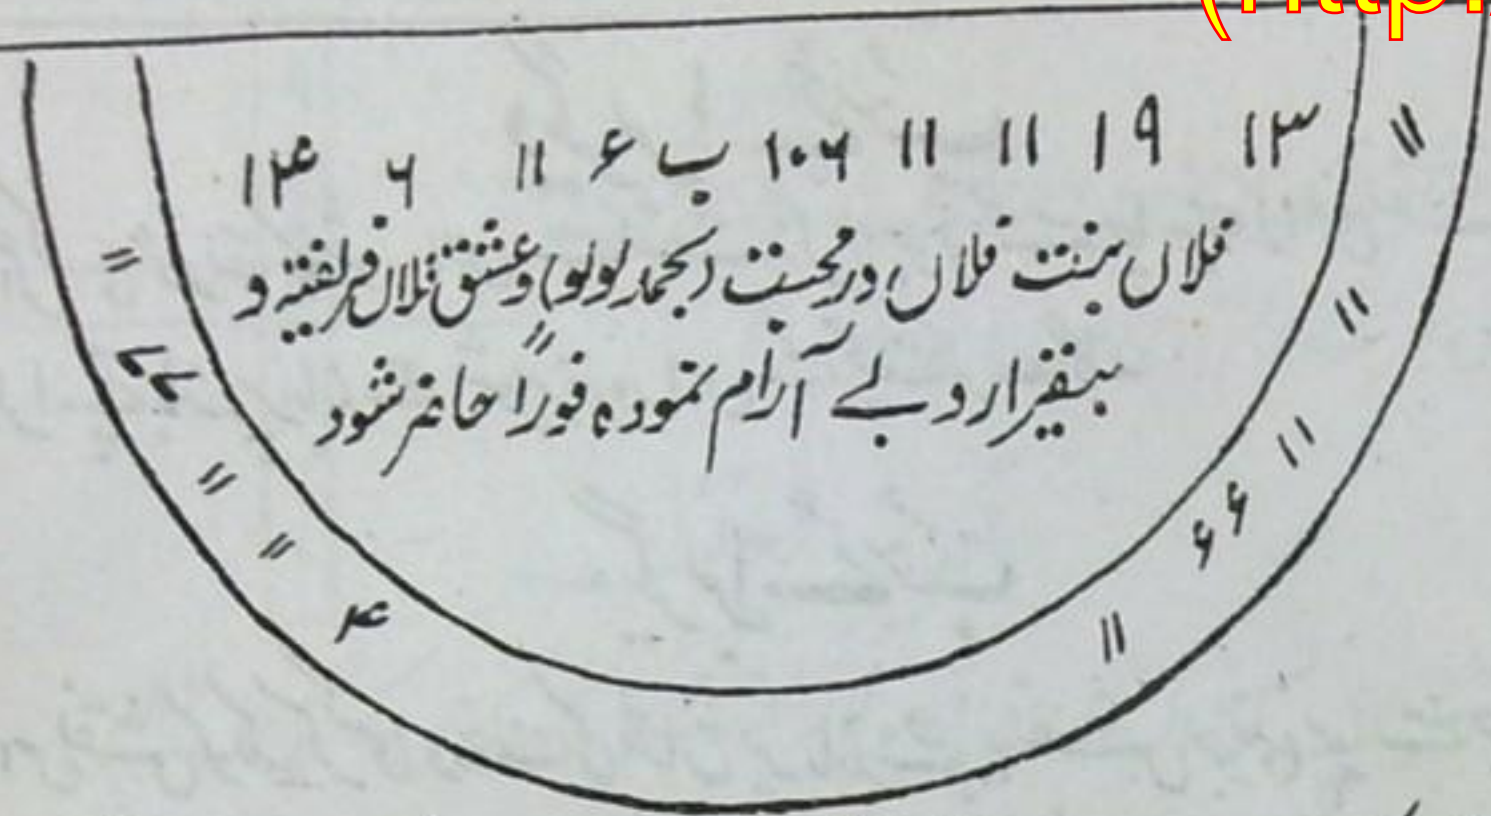 (http:
۱۳ ۱۹ ۱۱ ۱۱ ۱۰۶ ب ۶ ۱۱ ۶ ۱۴
فلاں بنت فلاں در محبت (بحمد لولو) وعشق فلاں فریفتہ و
بیقرار و بے آرام نمودہ فوراً حاضر شود
۱۱
۱۱
۱۱
۶۶
۱۱
۴
۱۱
۱۱
۲۲
۱۱